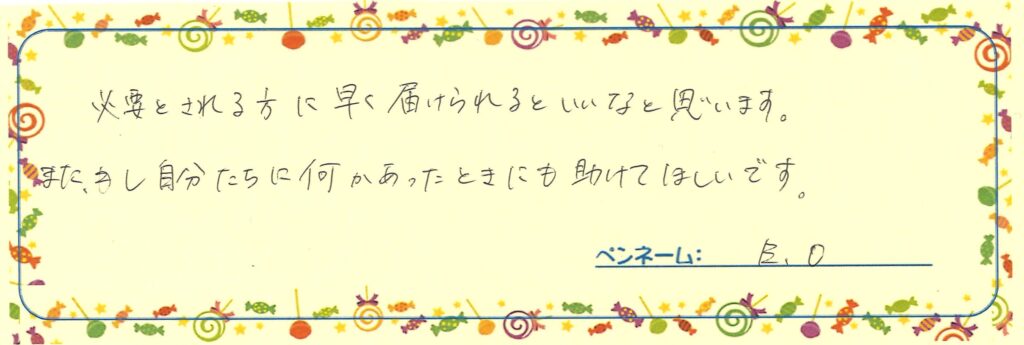 必要とされる方に早く届けられるといいなと思います。
また、もし自分たちに何かあったときにも助けてほしいです。
ペンネーム： E、O